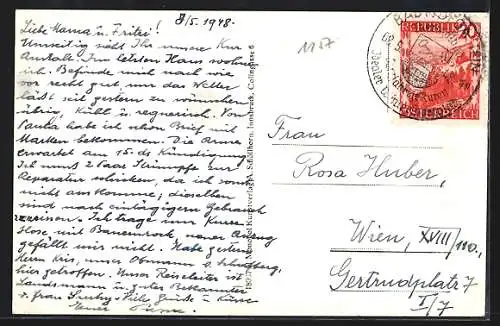 8/5. 1948.
Liebe Mama u. Fritzi!
Umseitig seht Ihr unsere Kur
Anstalt. Im letzten Haus wohnen
ich. Befinde mich nach wie
vor recht gut nur das Wetter
läßt seit gestern zu wünschen
übrig, kühl u. regnerisch. Von
Paula habe ich schon Brief mit
Marken bekommen. Die Arme
erwartet am 15. ds Kündigung
Ich muß 2 Paar Strümpfe zur
Reparatur schicken, da ich sonst
nicht auskomme; dieselben
sind nach eintägigem Gebrauch
zerrissen. Ich trage nur kurze
Hose mit Bauernrock, neuer Anzug
gefällt mir nicht. Habe gestern
Herrn Kris, unser Obmann
hier getroffen. Unser Reiseleiter ist
Landsmann u. guter Bekannter
v. Frau Viele Grüße u. Küsse
Euer
1187
REPUBLIK
ÖSTERREICH
Frau
Rosa Huber,
Wien, XVIII/110,
Gertrudplatz 7
I/7
Innsbruck, Colingasse 6